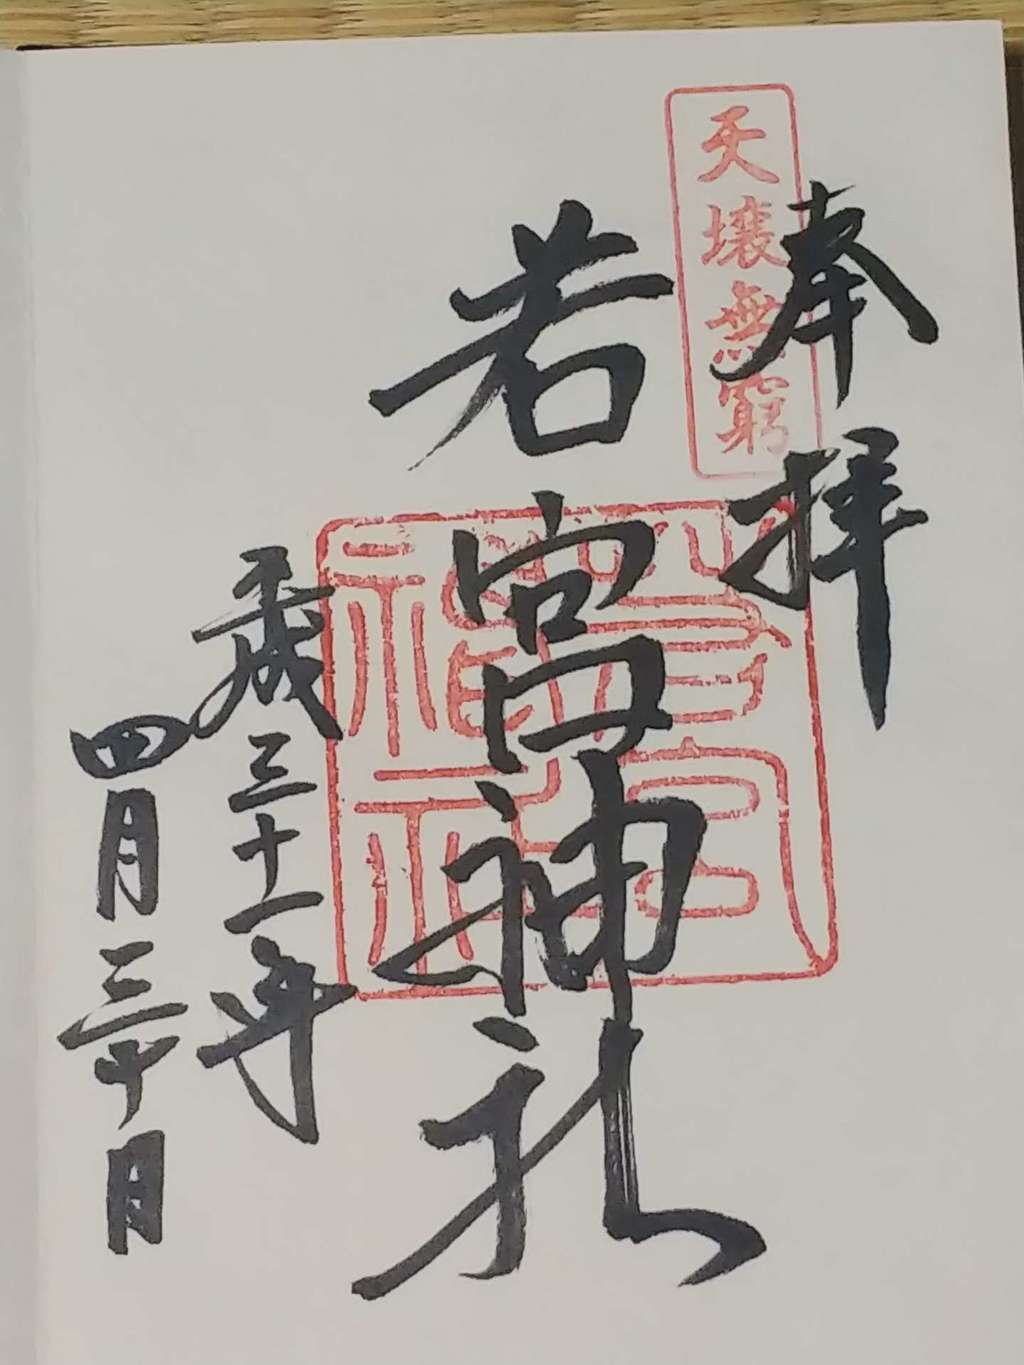 天壌無窮
奉拝
若宮神社
若宮
神社
平成三十一年
四月三十日